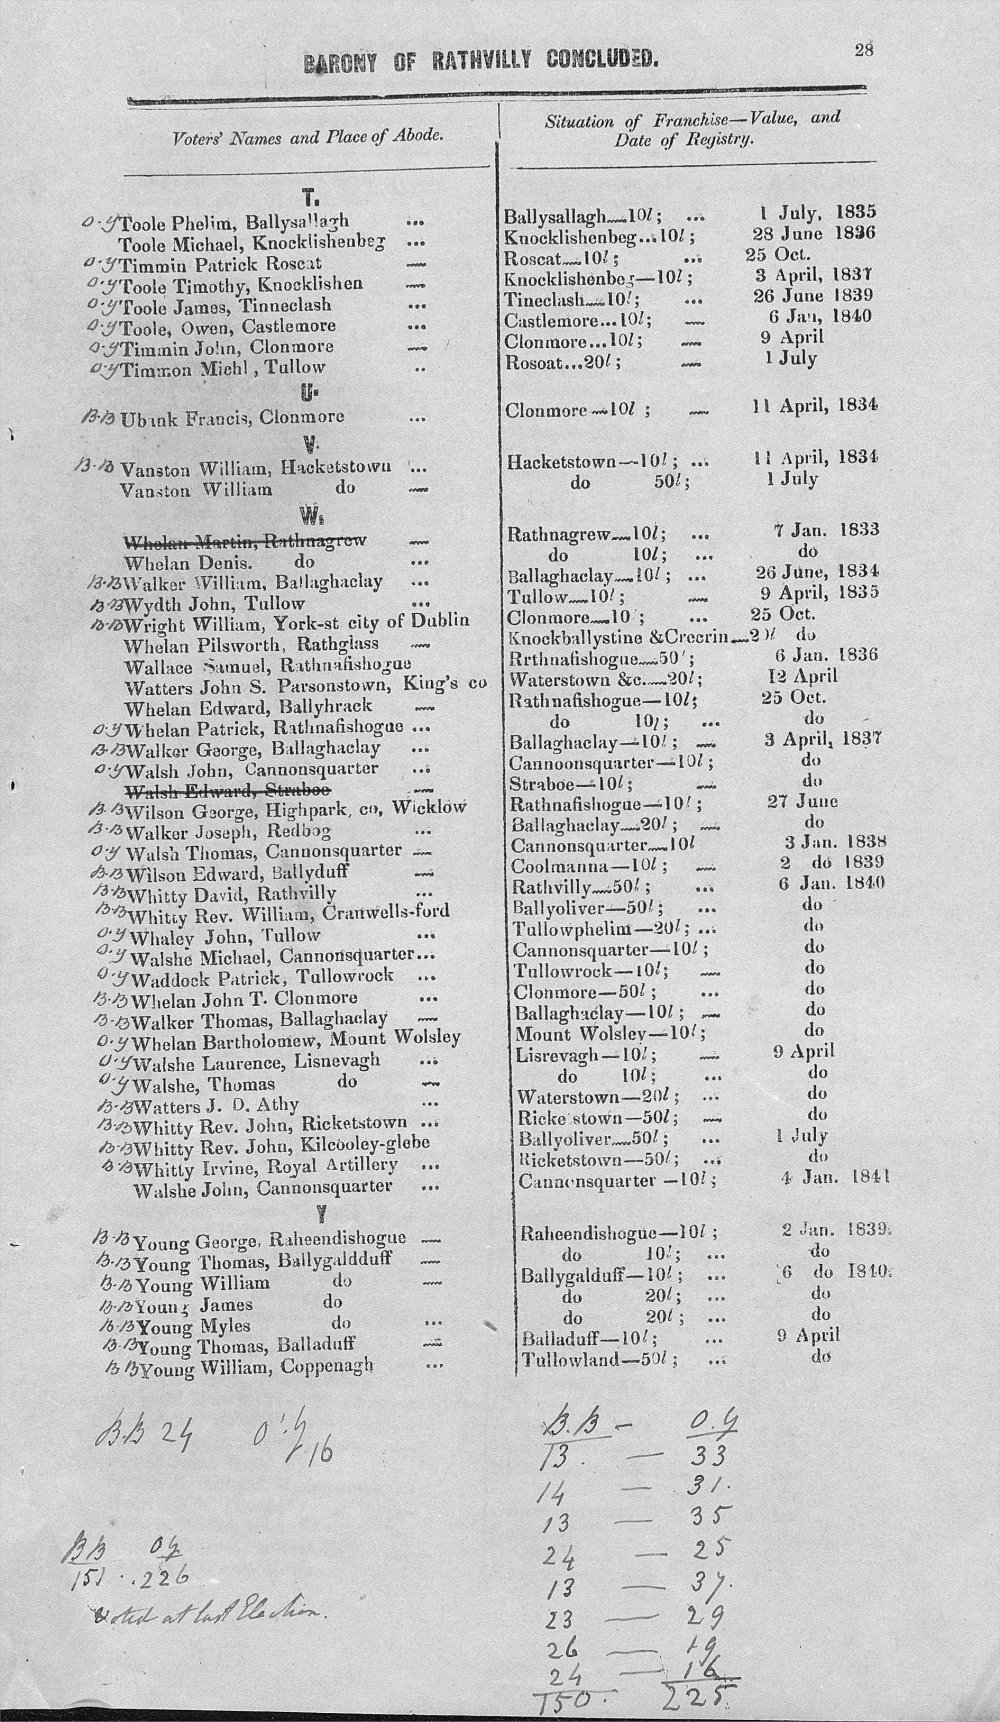 28
BARONY OF RATHVILLY CONCLUDED.
Voters' Names and Place of Abode. Situation of Franchise—Value, and Date of Registry.
T.
O.Y Toole Phelim, Ballysallagh ... Ballysallagh—10l; ... 1 July, 1835
Toole Michael, Knocklishenbeg ... Knocklishenbeg...10l; 28 June 1836
O.Y Timmin Patrick Roscat — Roscat—10l; ... 25 Oct.
O.Y Toole Timothy, Knocklishen — Knocklishenbeg—10l; 3 April, 1837
O.Y Toole James, Tinneclash ... Tineclash—10l; ... 26 June 1839
O.Y Toole, Owen, Castlemore ... Castlemore...10l; — 6 Jan, 1840
O.Y Timmin John, Clonmore — Clonmore...10l; — 9 April
O.Y Timmon Michl, Tullow .. Rosoat...20l; — 1 July
U.
B.B Ubank Francis, Clonmore ... Clonmore—10l; — 11 April, 1834
V.
B.B Vanston William, Hacketstown ... Hacketstown—10l; ... 11 April, 1834
Vanston William do — do 50l; 1 July
W.
Whelan Martin, Rathnagrew — Rathnagrew—10l; ... 7 Jan. 1833
Whelan Denis. do ... do 10l; ... do
B.B Walker William, Ballaghaclay ... Ballaghaclay—10l; ... 26 June, 1834
B.B Wydth John, Tullow ... Tullow—10l; — 9 April, 1835
B.B Wright William, York-st city of Dublin Clonmore—10l; ... 25 Oct.
Whelan Pilsworth, Rathglass — Knockballystine &Crecrin—20l do
Wallace Samuel, Rathnafishogue Rrthnafishogue—50l; 6 Jan. 1836
Watters John S. Parsonstown, King's co Waterstown &c.—20l; 12 April
Whelan Edward, Ballyhrack — Rathnafishogue—10l; 25 Oct.
O.Y Whelan Patrick, Rathnafishogue ... do 10l; ... do
B.B Walker George, Ballaghaclay ... Ballaghaclay—10l; — 3 April, 1837
O.Y Walsh John, Cannonsquarter ... Cannoonsquarter—10l; do
Walsh Edward, Straboe — Straboe—10l; — do
B.B Wilson George, Highpark, co, Wicklow Rathnafishogue—10l; 27 June
B.B Walker Joseph, Redbog ... Ballaghaclay—20l; — do
O.Y Walsh Thomas, Cannonsquarter — Cannonsquarter—10l 3 Jan. 1838
B.B Wilson Edward, Ballyduff — Coolmanna—10l; — 2 do 1839
B.B Whitty David, Rathvilly ... Rathvilly—50l; ... 6 Jan. 1840
B.B Whitty Rev. William, Cranwells-ford Ballyoliver—50l; ... do
O.Y Whaley John, Tullow ... Tullowphelim—20l; ... do
O.Y Walshe Michael, Cannonsquarter... Cannonsquarter—10l; do
O.Y Waddock Patrick, Tullowrock ... Tullowrock—10l; — do
B.B Whelan John T. Clonmore ... Clonmore—50l; ... do
B.B Walker Thomas, Ballaghaclay — Ballaghaclay—10l; — do
O.Y Whelan Bartholomew, Mount Wolsley Mount Wolsley—10l; do
O.Y Walshe Laurence, Lisnevagh ... Lisrevagh—10l; — 9 April
O.Y Walshe, Thomas do — do 10l; ... do
B.B Watters J. D. Athy ... Waterstown—20l; ... do
B.B Whitty Rev. John, Ricketstown ... Ricke stown—50l; — do
B.B Whitty Rev. John, Kilcooley-glebe Ballyoliver—50l; ... 1 July
B.B Whitty Irvine, Royal Artillery ... Ricketstown—50l; ... do
Walshe John, Cannonsquarter ... Cannonsquarter—10l; 4 Jan. 1841
Y
B.B Young George, Raheendishogue — Raheendishogue—10l; 2 Jan. 1839.
B.B Young Thomas, Ballygaldduff — do 10l; ... do
B.B Young William do — Ballygalduff—10l; ... 6 do 1840.
B.B Young James do do 20l; ... do
B.B Young Myles do ... do 20l; ... do
B.B Young Thomas, Balladuff — Balladuff—10l; ... 9 April
B.B Young William, Coppenagh ... Tullowland—50l; ... do
B.B 24 O.Y 16
B.B — O.Y
13. — 33
14 — 31.
13 — 35
24 — 25
13 — 37.
23 — 29
26 — 19
24 — 16
150. 225.
BB OY
151 . . 226
Voted at last Election.